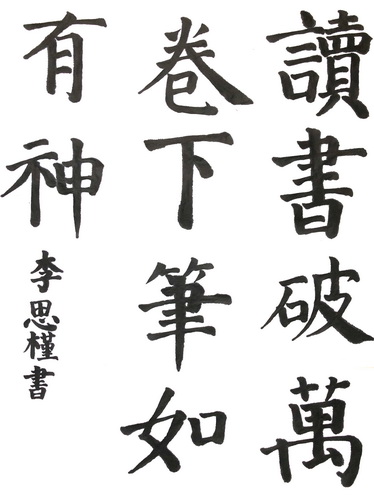 讀書破萬
卷下筆如
有神
李思槿書